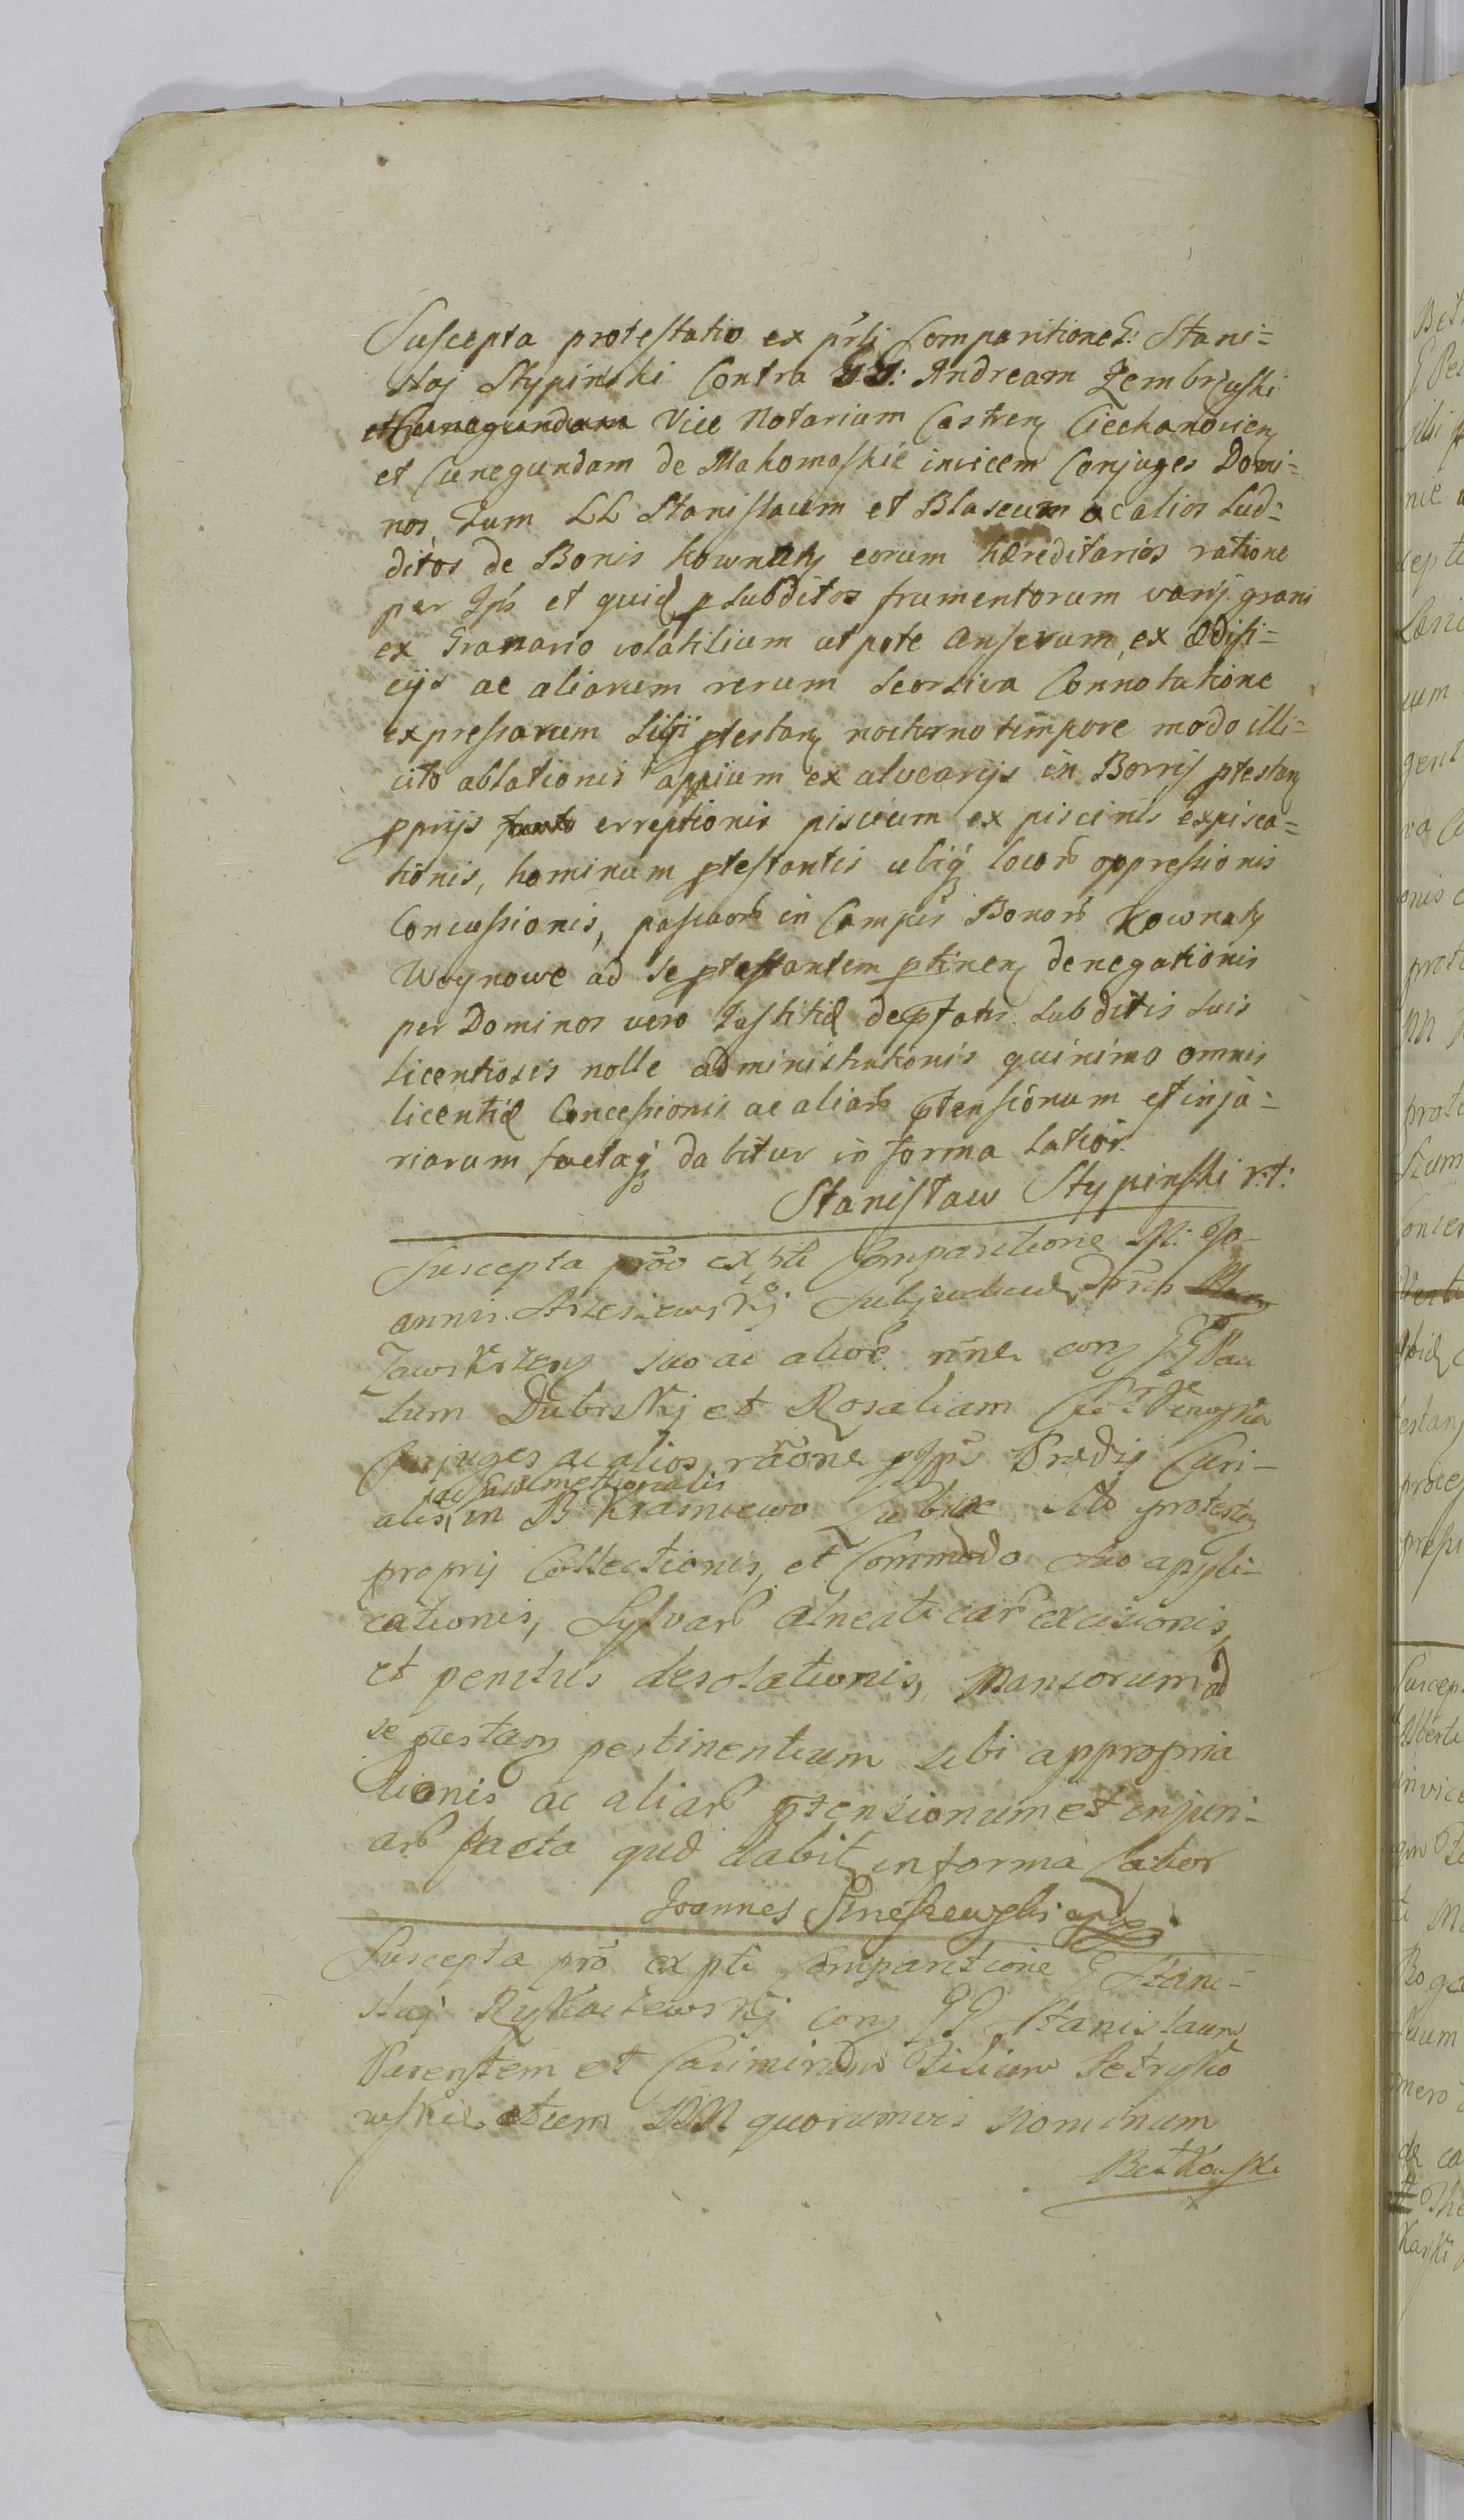 Suscepta protestatio ex prsti Comparitione G: Stani=
slaj Stypiński Contra GG: Andream Zembrzuski
et Cunegundam Vice Notarium Castren Ciechanovien
et Cunegundam de Makomaskie invicem Conjuges Domi=
nos, Tum LL Stanislaum et Blaseum ac alios Sud=
ditos de Bonis Kownaty eorum hæreditarios ratione
per Ips et quid p subditos frumentorum varij grani
ex Granario volatilium utpote Anserum, ex ædifi=
cijs ac aliarum rerum seorsiva Connotatione
expressarum Sibi ptestan nocturno tempore modo illi=
cito ablationis appium ex alvearijs in Borrij ptestan
pprijs erreptionis piscium ex piscinis expisca=
tionis, hominum ptestantis ubiq locor oppressionis
Concussionis, pascuor in Campis Bonor Kownaty
Woynowe ad se ptestantem ptinen denegationis
per Dominos vero Justitiæ de pfatis subditis suis
licentiosis nolle administrationis quinimo omnis
licentiæ Concessionis ac aliar ptensionum et inju=
riarum factaq dabitur in forma latior.
Stanisław Stypinski r.t:
Suscepta pro ex pti Comparitione M: Jo-
annis
Zawskrzen suo ac alior nne con GG Pau
lum Dubiskj et Rosaliam
Conjuges ac alios, raone Prædij Curi-
alis, in B Krasniewo protestan
proprij Collectionis, et Commodo suo appli-
cationis, Sylvar alneati ear excisionis,
et penitus desolationis, Mansorum ad
se ptestan pertinentium sibi appropria
tionis ac aliar ptensionum et injuri-
ar facta qud dabit in forma latior
Joannes
Suscepta pro ex pti Comparitione G Stani-
slaj Rykaczewskj con GG Stanislaum
Parentem et Casimirum Filium Petryko
wskie etiem NN quorumvis Nominum
Betkowski